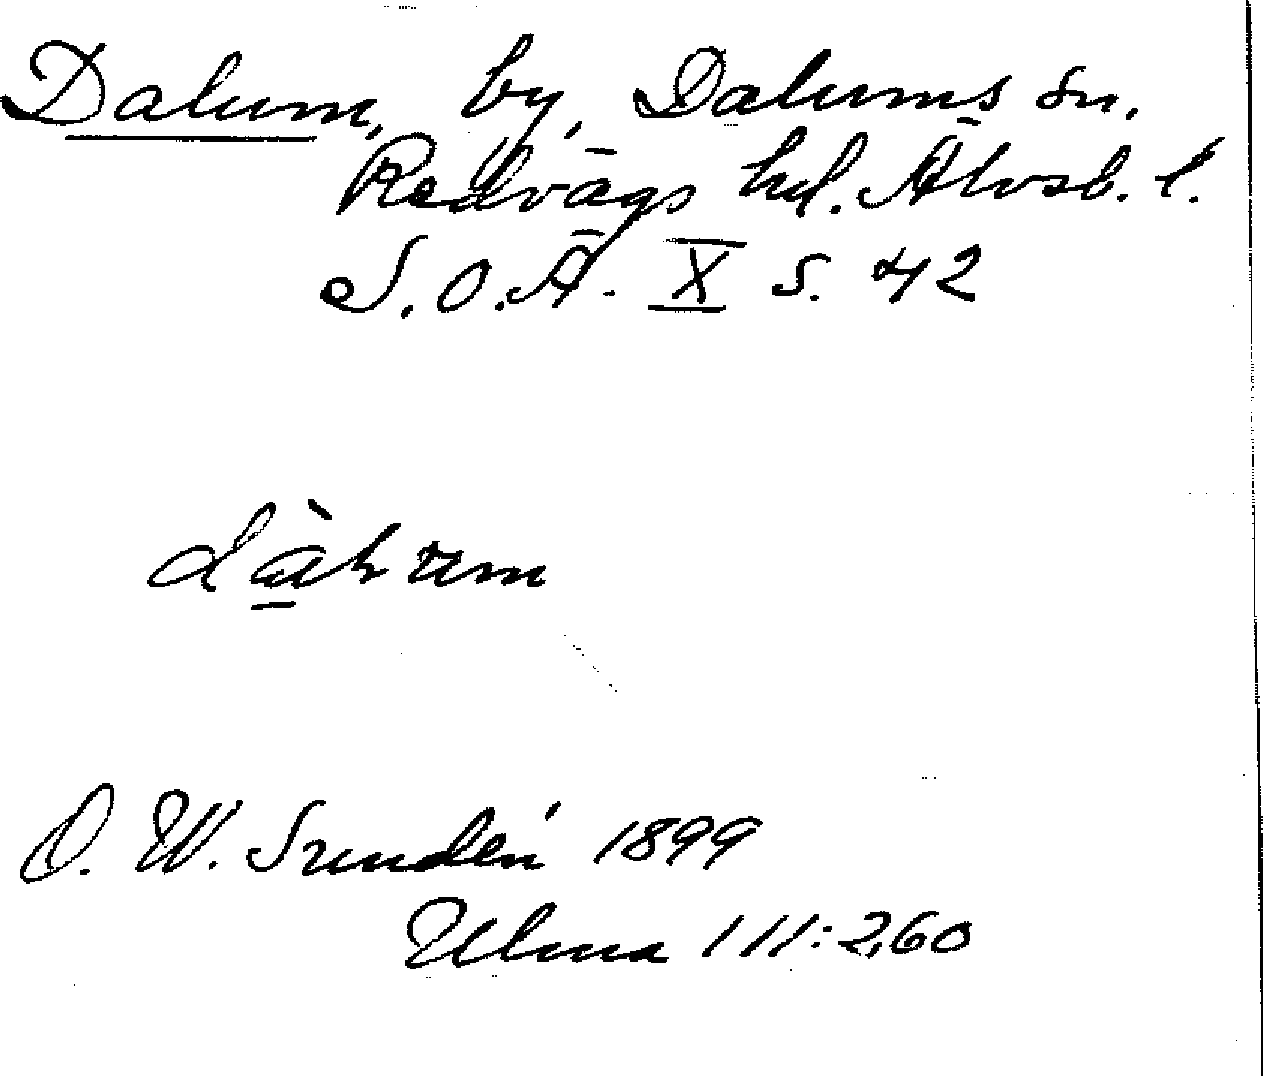 Dalum, by, Dalums sn.
Redvägs hd. Älvsb. l.
S. O. Ä. X S. 42
O. W. Sundén 1899
Ulma 111:260